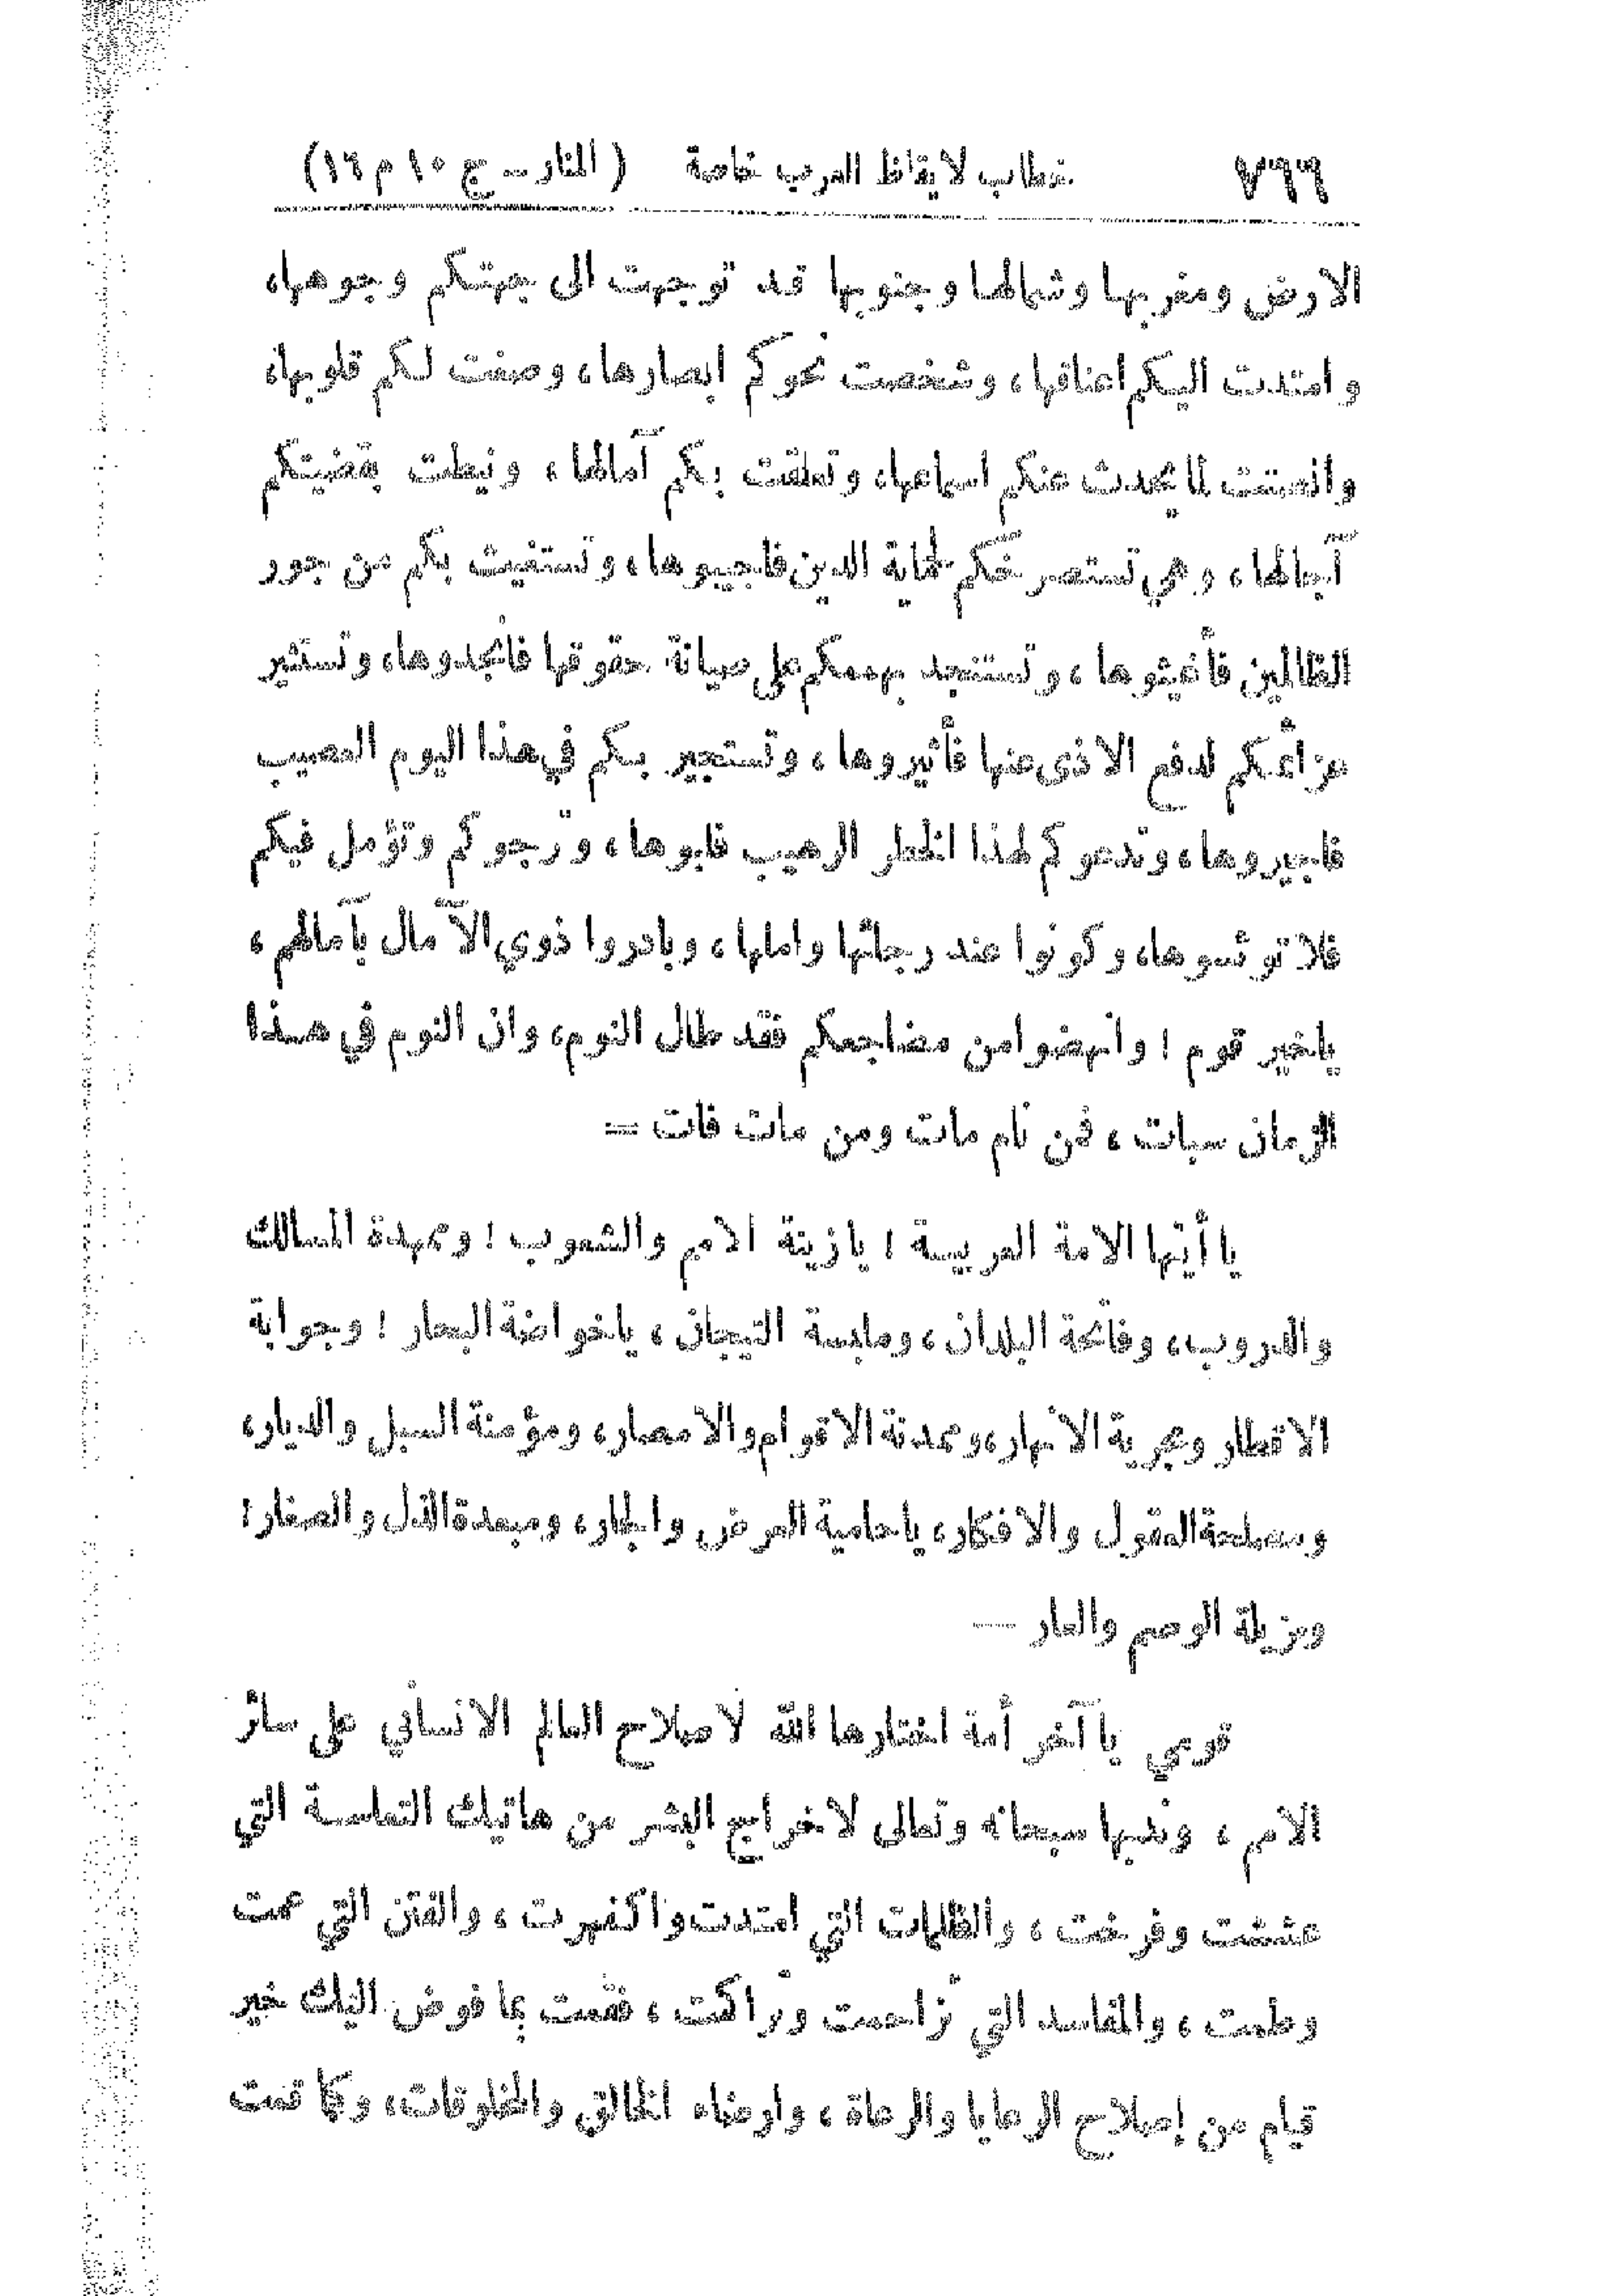 ٧٦٦ خطاب لايقاظ العرب خاصة ( المنار ــ ج ١٠ م ١٦)
الارض ومغربها وشمالها وجنوبها قد توجهت الى جهتكم وجوهها،
وامتدت اليكم اعناقها، وشخصت نحوكم ابصارها، وصفت لكم قلوبها،
وانصتت لما يحدث عنكم اسماعها، وتعلقت بكم آمالها، ونيطت بقضيتكم
آجالها، وهي تستصرخكم لحماية الدين فاجيبوها، وتستغيث بكم من جور
الظالمين فأغيثوها، وتستنجد بهممكم على صيانة حقوقها فأنجدوها، وتستثير
عزائمكم لدفع الاذى عنها فأثيروها، وتستجير بكم في هذا اليوم العصيب
فاجيروها، وتدعوكم لهذا الخطر الرهيب فلبوها، وترجوكم وتؤمل فيكم
فلا توئسوها، وكونوا عند رجائها واملها، وبادروا ذوي الآمال بآمالهم،
ياخير قوم ! وانهضوا من مضاجعكم فقد طال النوم، وان النوم في هذا
الزمان سبات، فمن نام مات ومن مات فات =
يا أيتها الامة العربية ! يا زينة الامم والشعوب ! وممهدة المسالك
والدروب، وفاتحة البلدان، وملبسة التيجان، ياخواضة البحار ! وجوابة
الاقطار ومجرية الانهار، وممدنة الاقوام والامصار، ومؤمنة السبل والديار،
ومصلحة العقول والافكار، ياحامية العرض والجار، ومبعدة الذل والصغار !
ومزيلة الوصم والعار —
قومي يا آخر أمة اختارها الله لاصلاح العالم الانساني على سائر
الامم، وندبها سبحانه وتعالى لاخراج البشر من هاتيك التعاسة التي
عششت وفرخت، والظلمات التي امتدت واكفهرت، والفتن التي عمت
وطمت، والمفاسد التي تزاحمت وتراكمت، فقمت بما فوض اليك خير
قيام من إصلاح الرعايا والرعاة، وارضاء الخالق والمخلوقات، وكما قمت